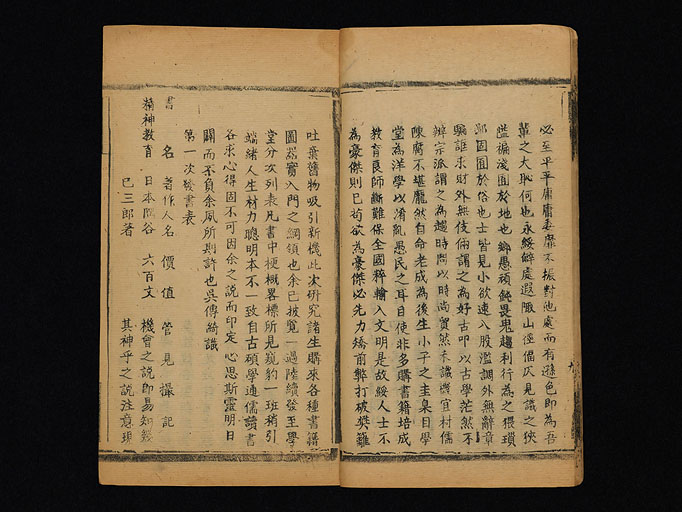 必至平平庸庸委靡不振對他處而有遜色即為吾
輩之大恥何也永綏僻處遐陬山徑偪仄見識之狹
隘褊淺囿於地也鄉愚頑鈍畏鬼趨利行為之猥瑣
鄙固囿於俗也士皆見小欲速八股濫調外無辭章
騙誰求財外無伎倆謂之為好古叩以古學茫然不
辨宗派謂之為趨時問以時尚貿然未識機宜村儒
陳腐不堪龐然自命老成為後生小子之圭臬目學
堂為洋學以淆亂愚民之耳目使非多購書籍培成
教育良師斷難保全國粹輸入文明是故綏人士不
為豪傑則已苟欲為豪傑必先力矯前弊打破樊籬
吐棄舊物吸引新機此次研究諸生購來各種書籍
圖器實入門之綱領也余已披覽一過陸續發至學
堂分次列表凡書中梗概畧標所見窺豹一班稍引
端緒人生材力聰明本不一致自古碩學通儒讀書
各求心得固不可因余之說而印定心思斯靈明日
闢而不負余夙所期許也吳傳綺識
第一次發書表
書名 著作人名 價值 管見撮記
精神教育 日本 谷 六百文 機會之說即易知幾
巳三郎著 其神乎之說注意